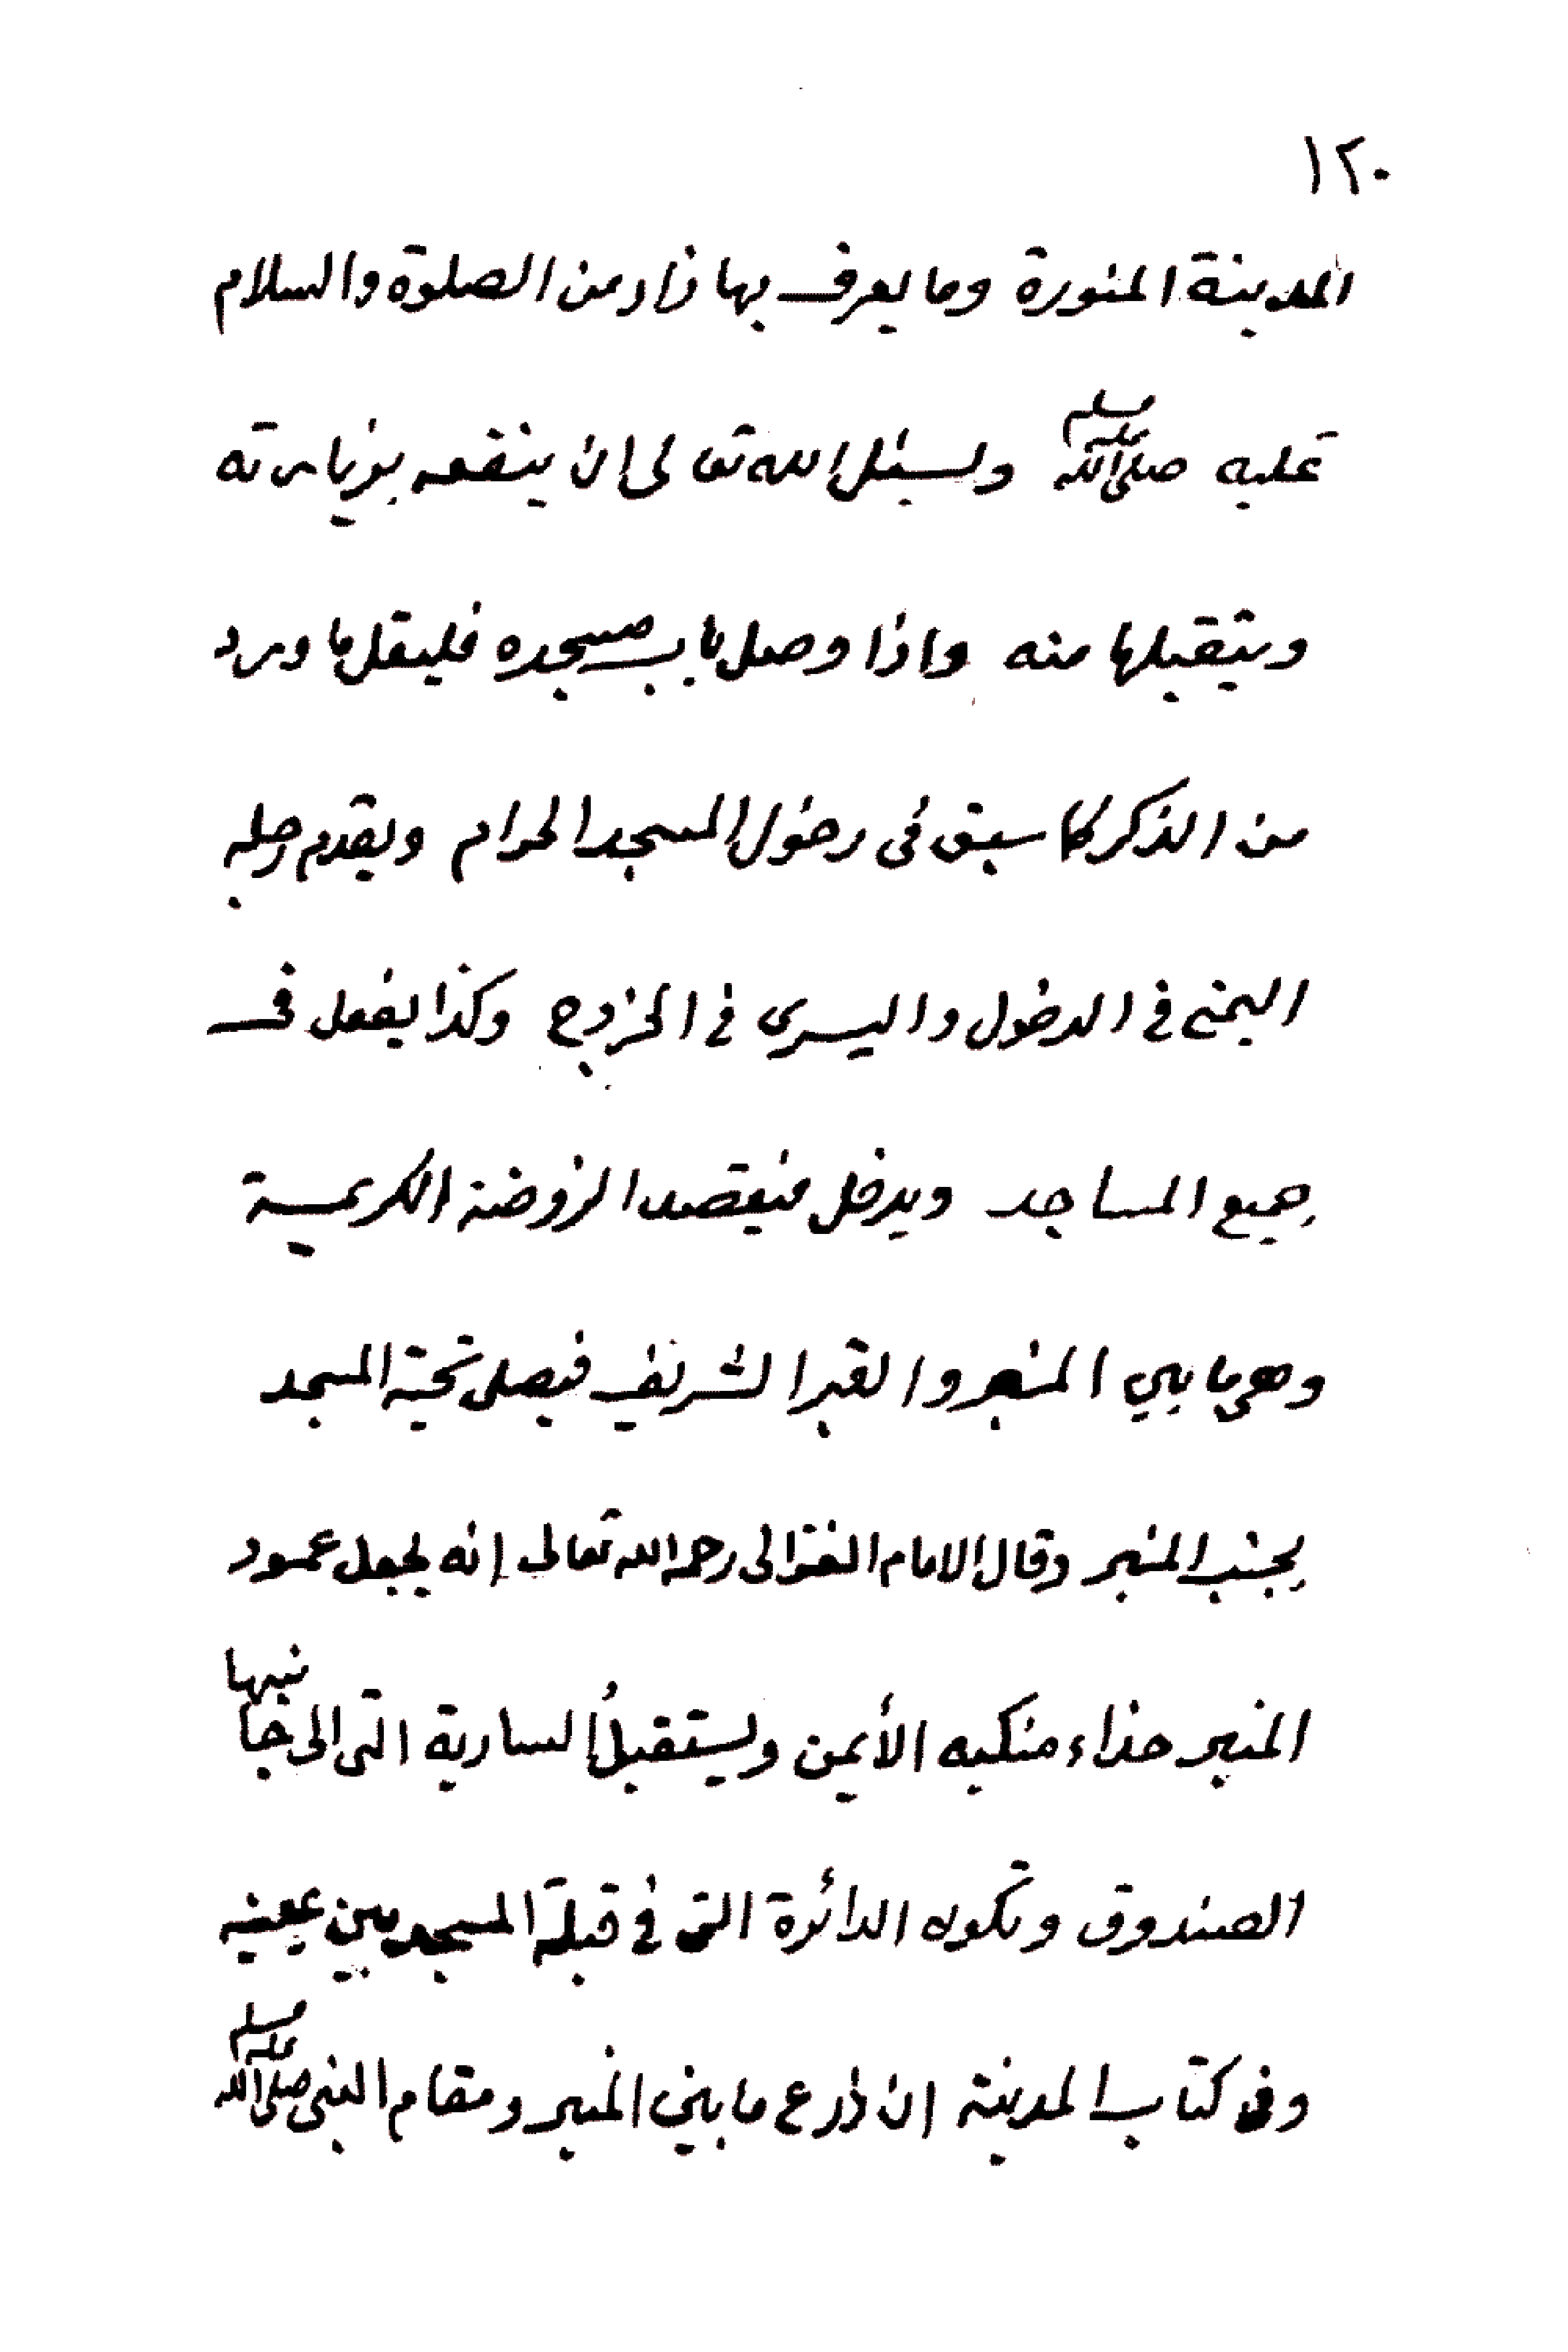 ١٢٠
المدينة المنورة وما يعرف بها زاد من الصلوة والسلام
عليه صلى الله عليه وسلم ويسئل الله تعالى ان ينفعه بزيارته
ويتقبلها منه واذا وصل باب مسجده فليقل ما ورد
من الذكر كما سبق في دخول المسجد الحرام ويقدم رجله
اليمنى في الدخول واليسرى في الخروج وكذا يفعل في
جميع المساجد ويدخل فيقصد الروضة الكريمة
وهي ما بين المنبر والقبر الشريف فيصلى تحية المسجد
بجنب المنبر وقال الامام الغزالى رحمه الله تعالى إنه يجعل عمود
المنبر حذاء منكبه الأيمن ويستقبلُ السارية التى الى جانبها
الصندوق وتكون الدائرة التى في قبلة المسجد بين عينيه
وفى كتاب المدينة ان ذرع ما بين المنبر ومقام النبى صلى الله عليه وسلم